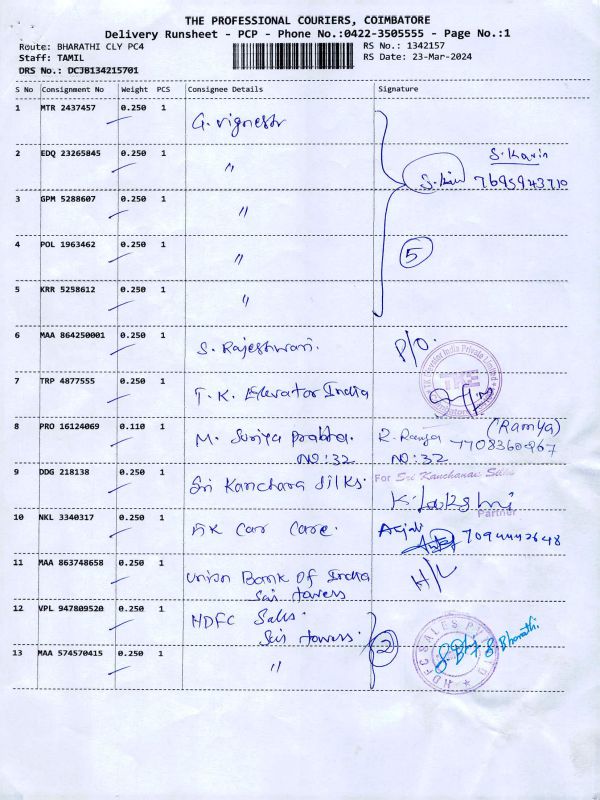 THE PROFESSIONAL COURIERS, COIMBATORE
Delivery Runsheet - PCP - Phone No.:0422-3505555 - Page No.:1
Route: BHARATHI CLY PC4 RS No.: 1342157
Staff: TAMIL RS Date: 23-Mar-2024
DRS No.: DCJB134215701
S No Consignment No Weight PCS Consignee Details Signature
1 MTR 2437457 0.250 1 G. Vignesh
2 EDQ 23265845 0.250 1 〃 S. Kavin
7695943710
3 GPM 5288607 0.250 1 〃
4 POL 1963462 0.250 1 〃 5
5 KRR 5258612 0.250 1 〃
6 MAA 864250001 0.250 1 S. Rajeshwari. P/O.
7 TRP 4877555 0.250 1 T. K. Elevator India
TKE
8 PRO 16124069 0.110 1 M. Suriya Prabha. R. Ramya (Ramya)
NO: 32 NO: 32
9 DDG 218138 0.250 1 Sri Kanchana Silks. For Sri Kanchanaa Silks
K. Lakshmi
Partner
10 NKL 3340317 0.250 1 AK Car Care. Anjali
11 MAA 863748658 0.250 1 Union Bank Of India H/L
Sai towers
12 VPL 947809520 0.250 1 HDFC Sales
Sai towers. 2 S. Bharathi
HDFC SALES
13 MAA 574570415 0.250 1 〃